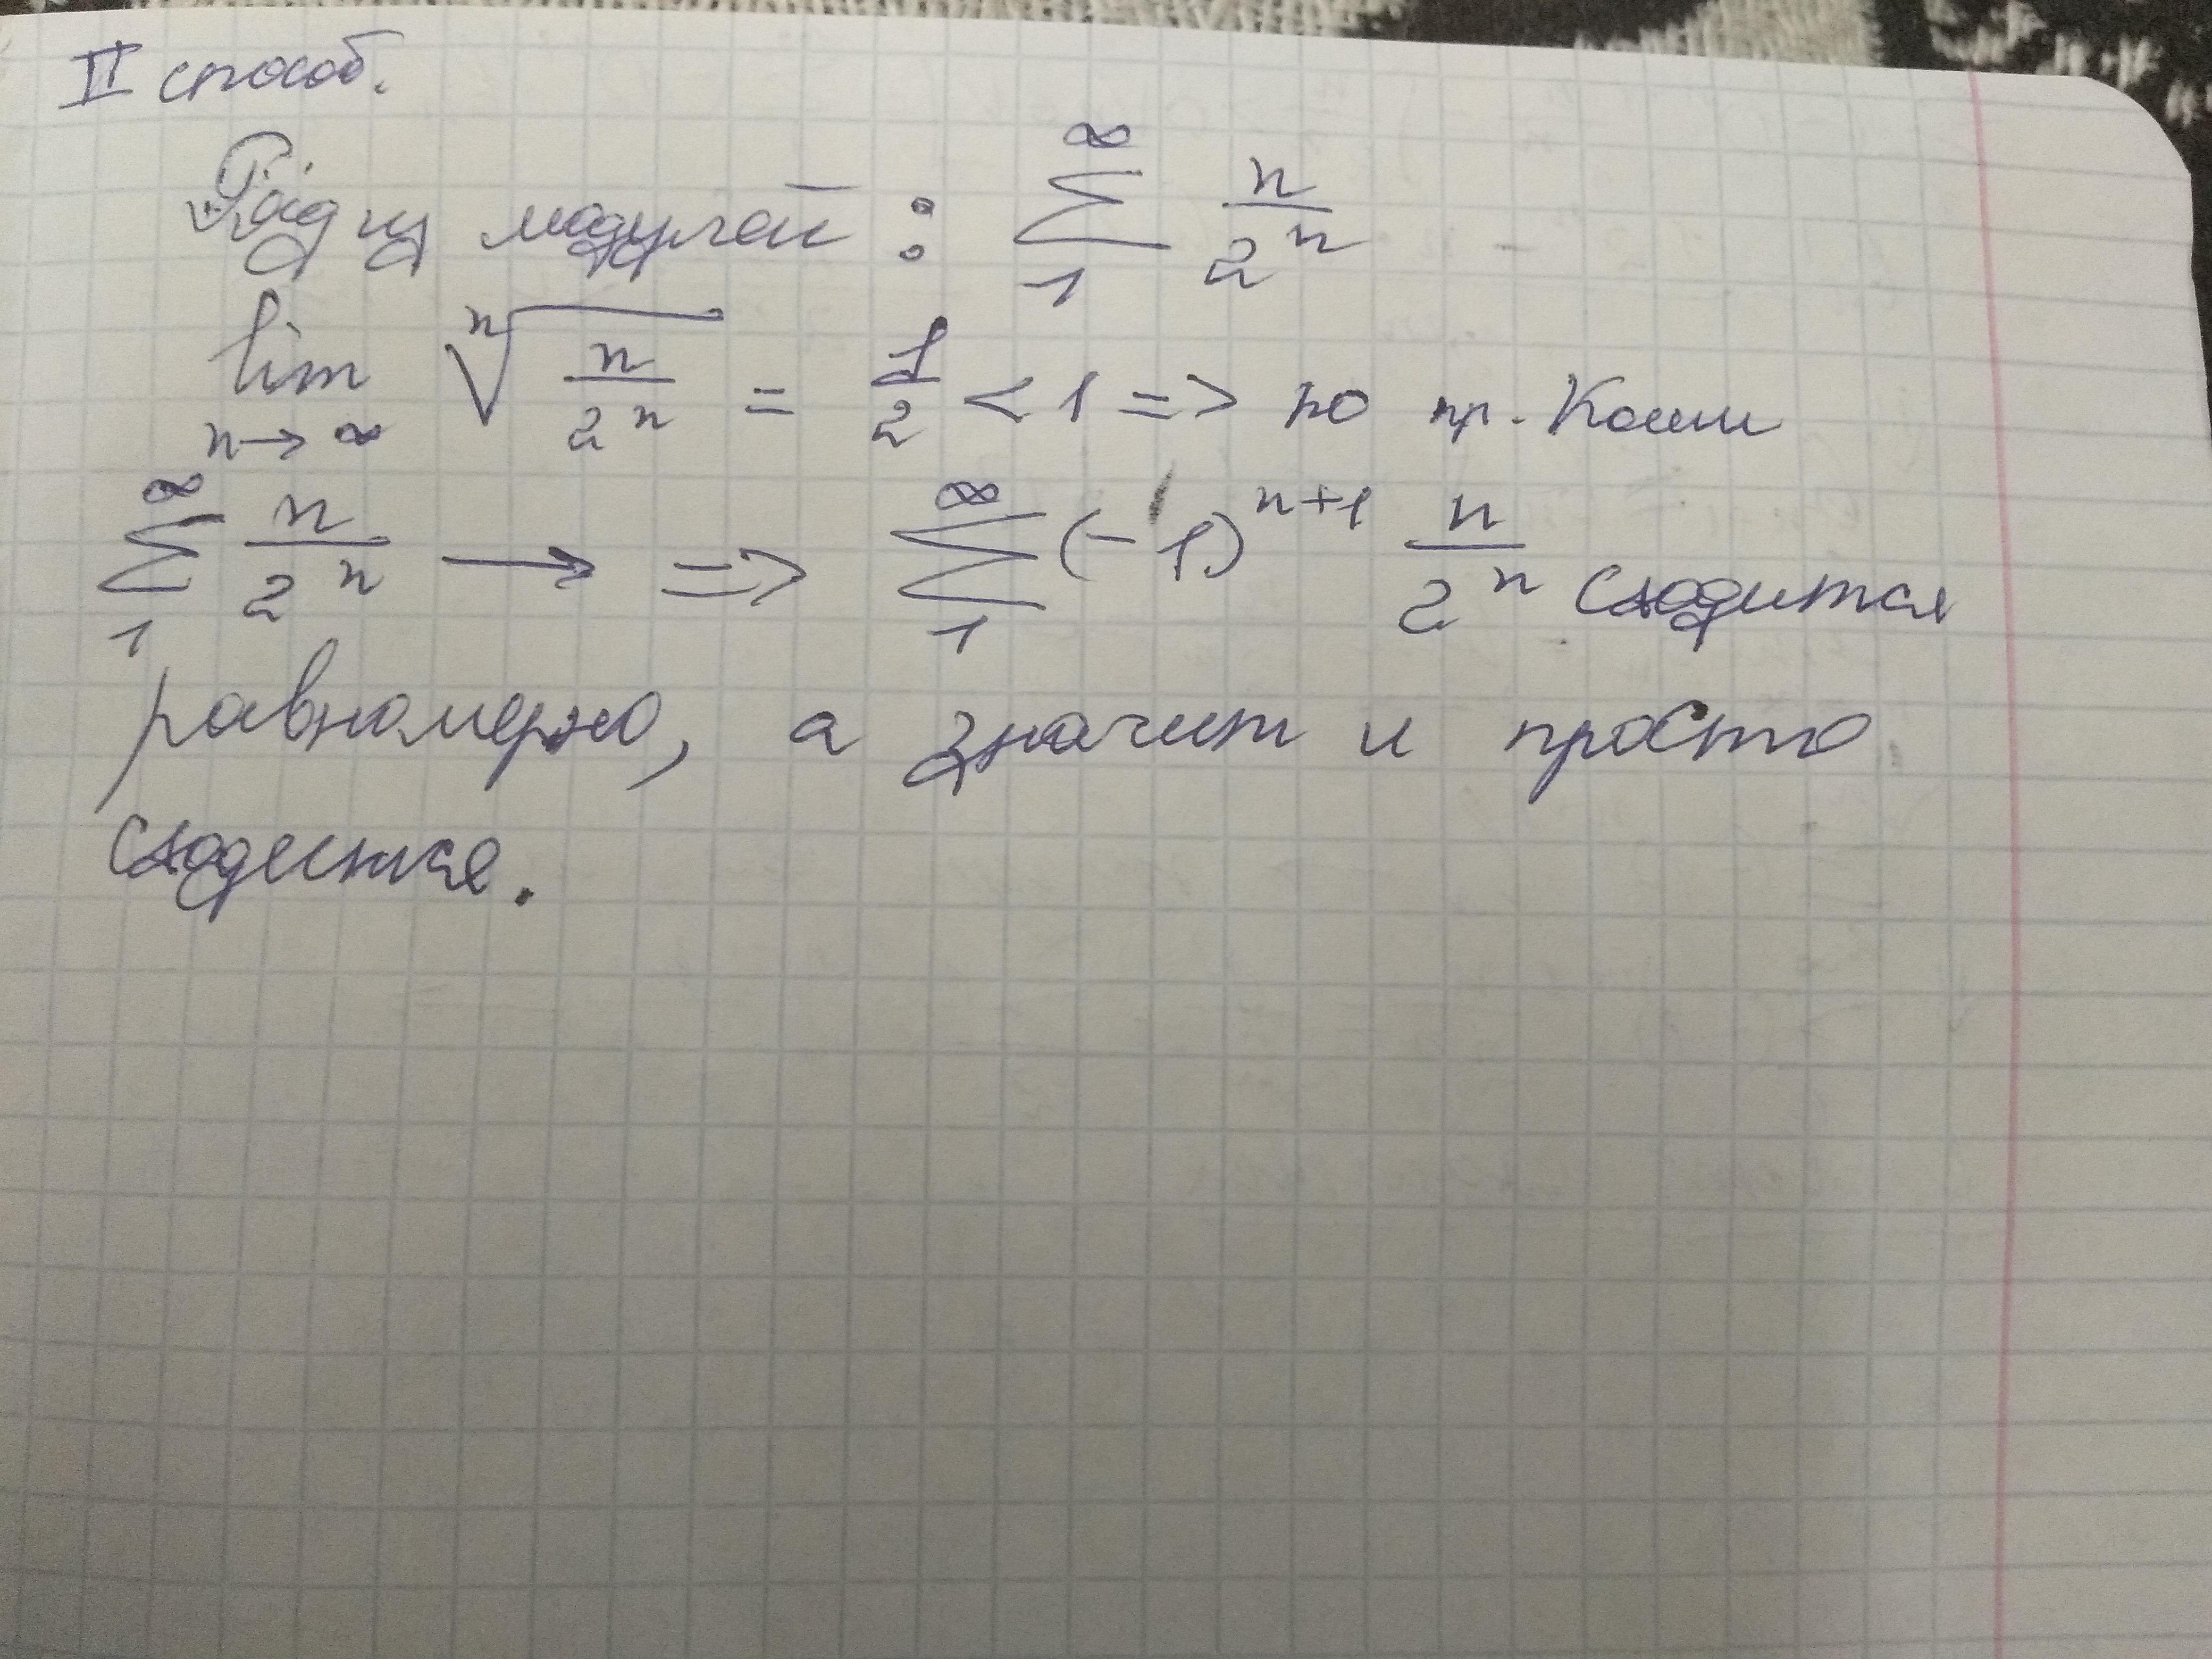 II способ.
Ряд из модулей: ∑_{1}^{∞} n/2^n
lim_{n→∞} ⁿ√(n/2^n) = 1/2 < 1 => по пр. Коши
∑_{1}^{∞} n/2^n → => ∑_{1}^{∞} (-1)^{n+1} n/2^n сходится
равномерно, а значит и просто
сходится.